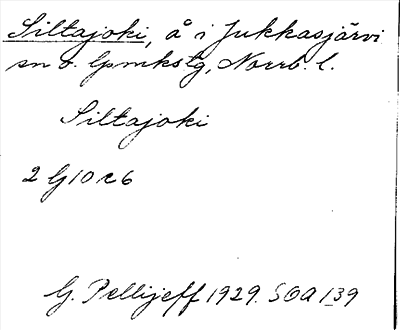 Siltajoki, å i Jukkasjärvi
sn o. lpmkstg, Norrb. l.
Siltajoki
2 G 10 c 6
G. Pellijeff 1929. SOA 139